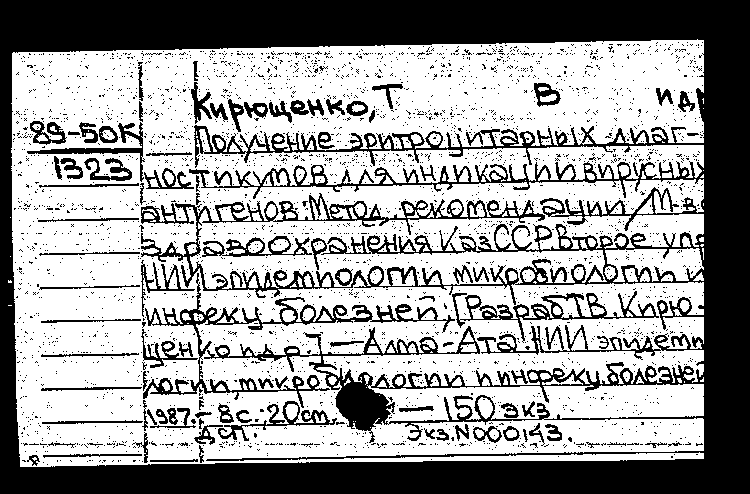 Кирющенко, Т В и др
89-50К
1323
Получение эритроцитарных диаг-
ностикумов для индикации вирусных
антигенов: Метод. рекомендации / М-во
здравоохранения КазССР, Второе упр
НИИ эпидемиологии, микробиологии и
инфекц. болезней; [Разраб. Т.В. Кирю-
щенко и др.] — Алма-Ата: НИИ эпидеми
логии, микробиологии и инфекц. болезней
1987. – 8с.; 20см. — 150 экз.
ДСП. Экз. N000143.